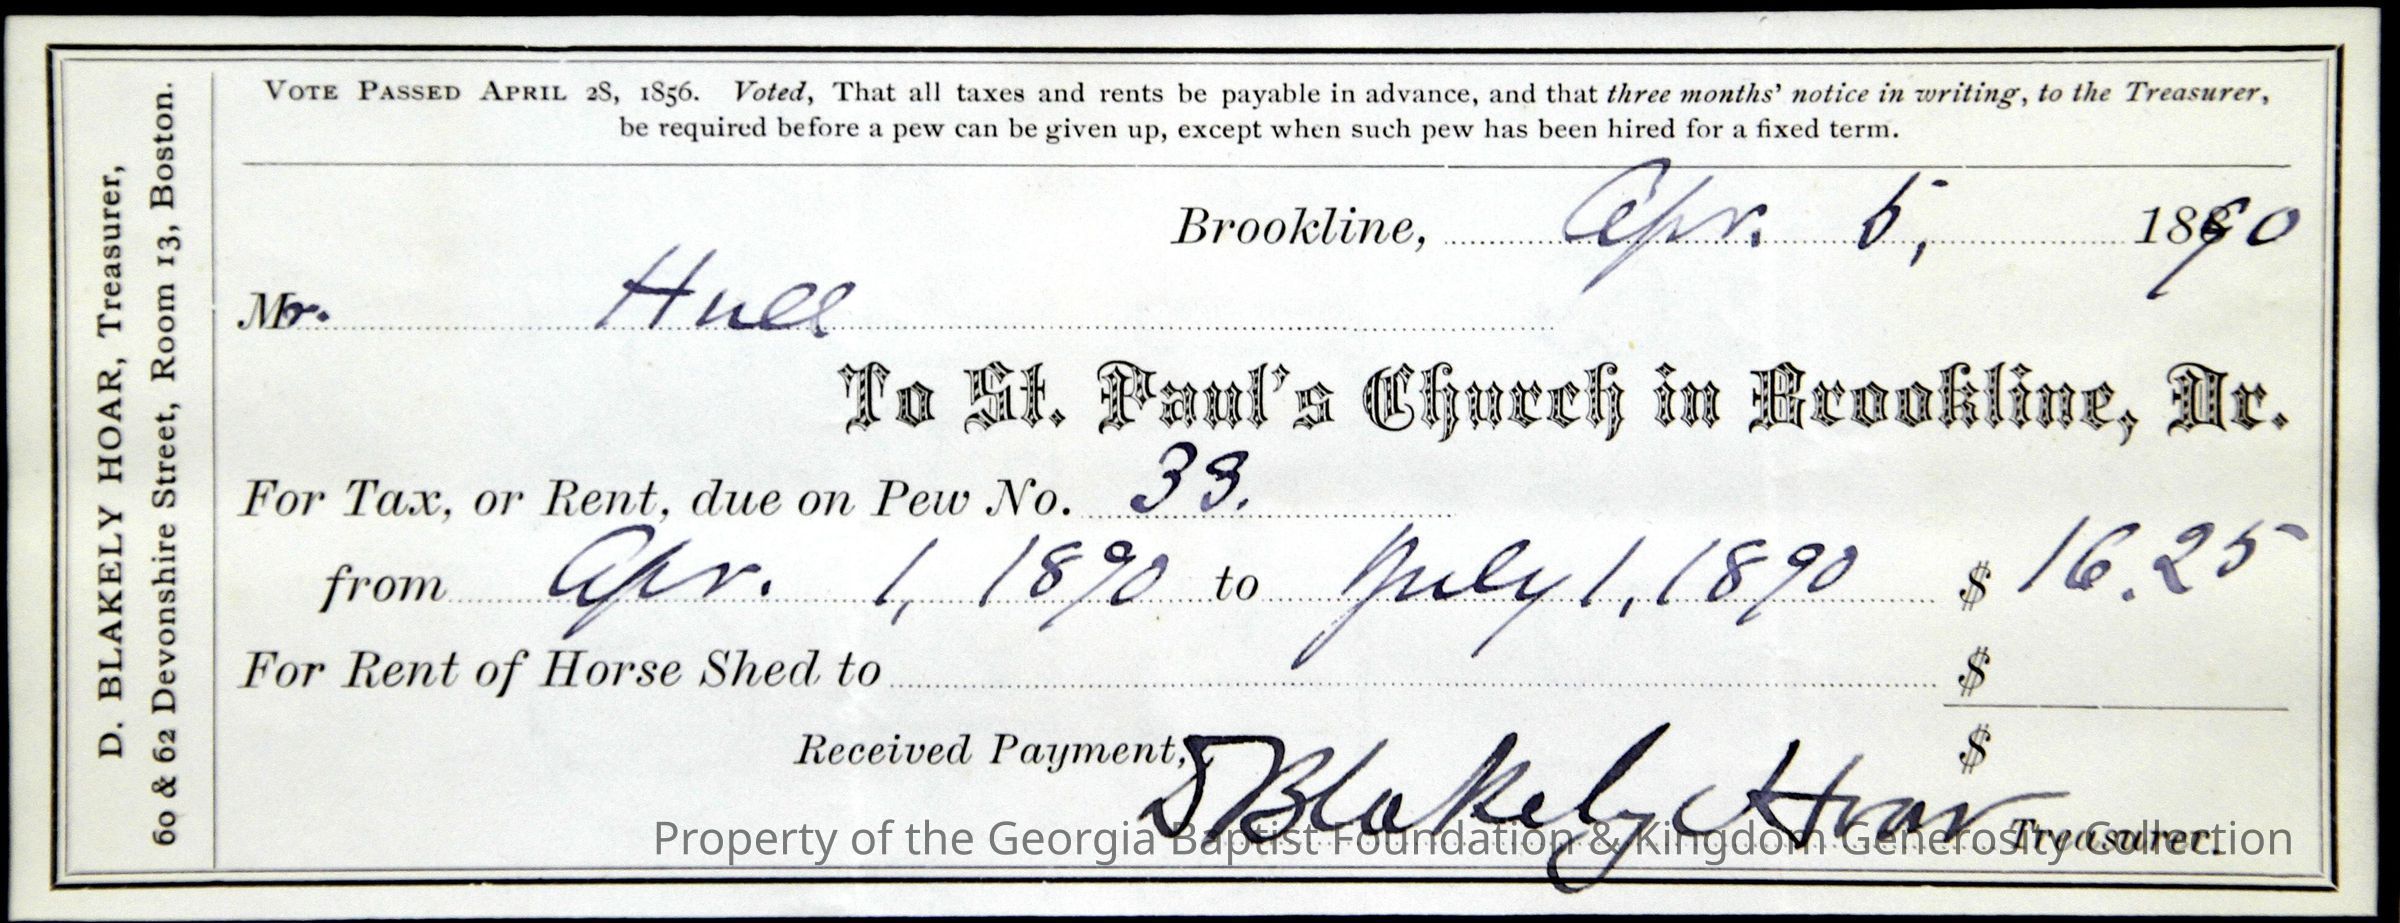 D. BLAKELY HOAR, Treasurer,
60 & 62 Devonshire Street, Room 13, Boston.
VOTE PASSED APRIL 28, 1856. Voted, That all taxes and rents be payable in advance, and that three months' notice in writing, to the Treasurer,
be required before a pew can be given up, except when such pew has been hired for a fixed term.
Brookline, Apr. 5, 1890
Mr. Hull
To St. Paul's Church in Brookline, Dr.
For Tax, or Rent, due on Pew No. 33.
from Apr. 1, 1890 to July 1, 1890 $ 16.25
For Rent of Horse Shed to $
Received Payment, $
D Blakely Hoar Treasurer.
Property of the Georgia Baptist Foundation & Kingdom Generosity Collection